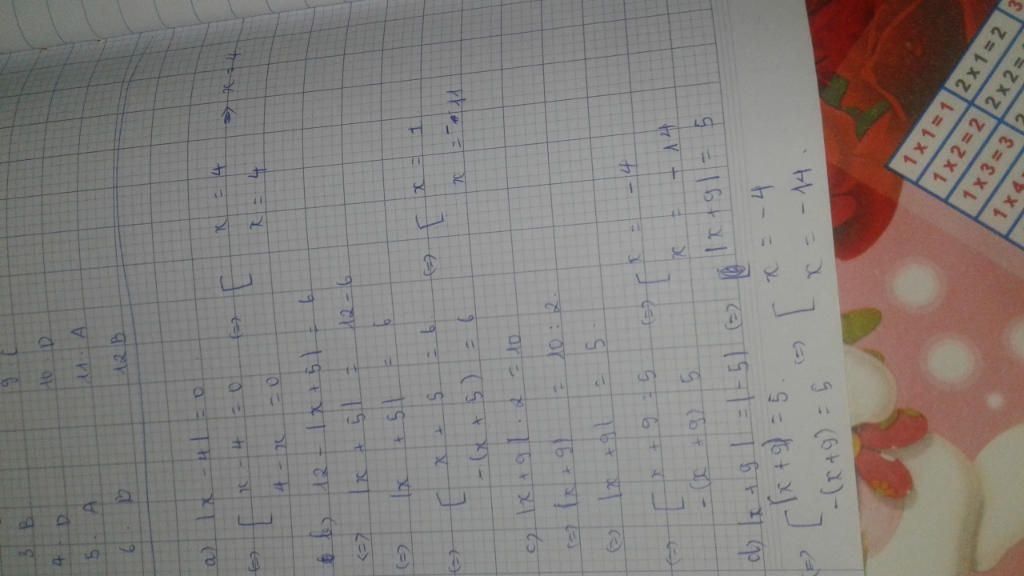 3 B
9 C
4. D
10. D
5. A
11. A
6. D
12 B
a) |x - 4| = 0
(=) [ x - 4 = 0 (=) [ x = 4 => x = 4
4 - x = 0 x = 4
b) 12 - |x + 5| = 6
(=) |x + 5| = 12 - 6
(=) |x + 5| = 6
(=) [ x + 5 = 6 (=) [ x = 1
-(x + 5) = 6 x = - 11
c) |x + 9| . 2 = 10
(=) |x + 9| = 10 : 2
(=) |x + 9| = 5.
(=) [ x + 9 = 5 (=) [ x = -4
-(x + 9) 5 x = - 14
d) |x + 9| = |-5| (=) |x + 9| = 5
(=) [ (x + 9) = 5. (=) [ x = -4
-(x + 9) = 5 x = -14.
1 x 1 = 1
2 x 1 = 2
1 x 2 = 2
2 x 2 =
1 x 3 = 3
2
1 x 4
3